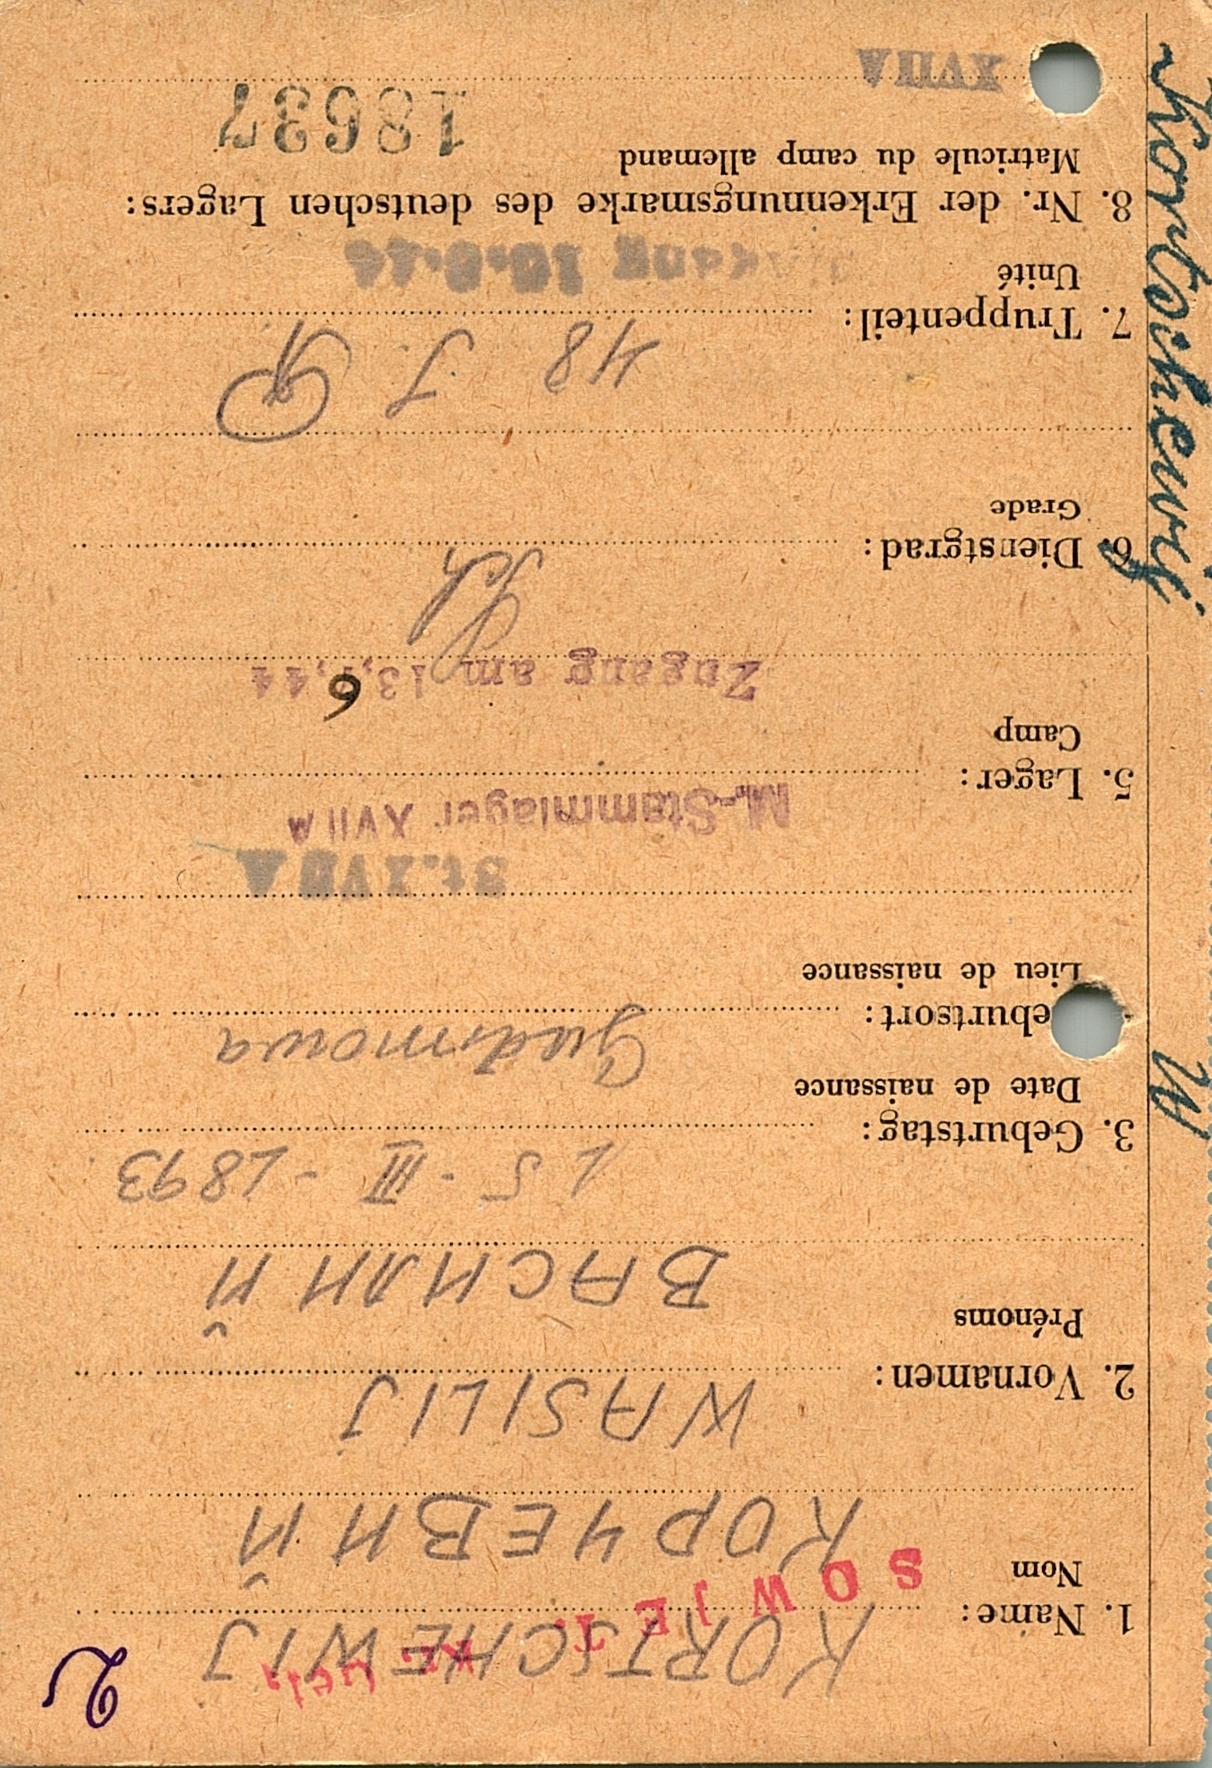 2
SOWJET. Kr. Gef.
1. Name: KORTSCHEWIJ
Nom
КОРЧЕВИЙ
2. Vornamen: WASILIJ
Prénoms
ВАСИЛИЙ
3. Geburtstag: 15 - III - 1893
Date de naissance
eburtsort:
Lieu de naissance
St.XVIIA
M.-Stammlager XVII A
5. Lager:
Camp
Zugang am 13.6.44
6. Dienstgrad: Sch
Grade
7. Truppenteil: 48 J. P
Unité
gang 10.6.44
8. Nr. der Erkennungsmarke des deutschen Lagers:
Matricule du camp allemand
18637
XVIIA
Kortschewij W